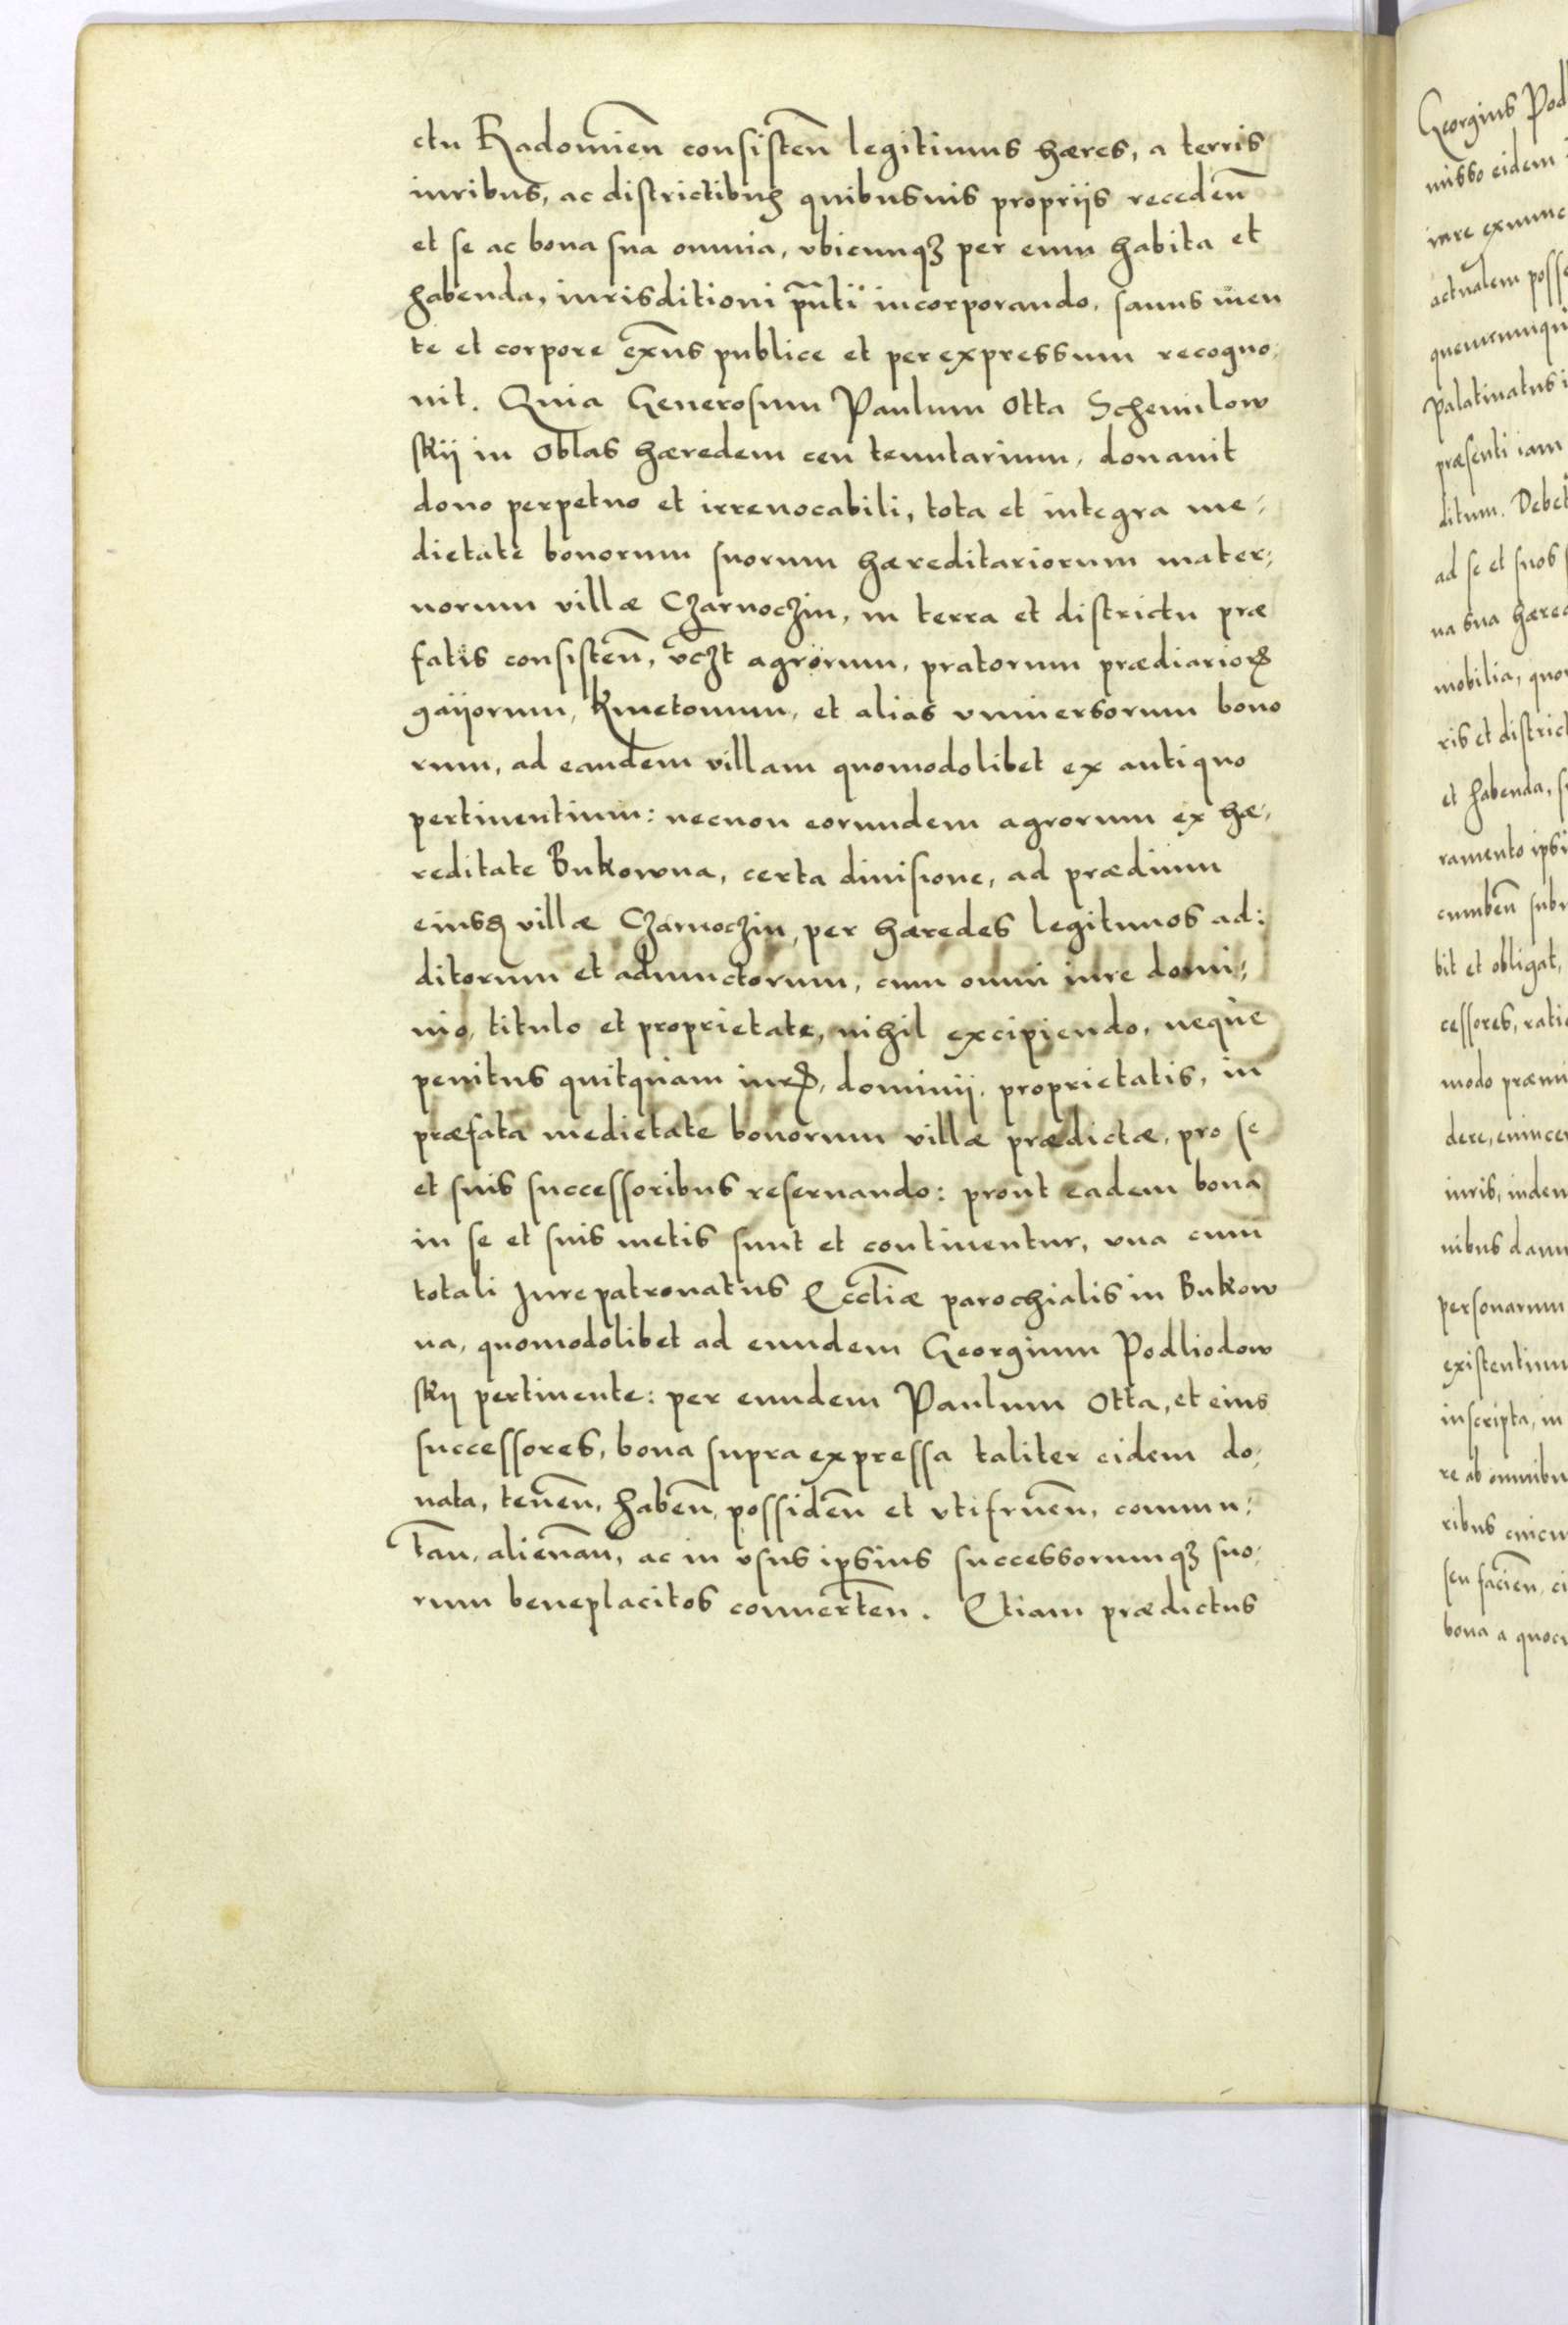 ctu Radomien̄ consisten̄ legitimus hæres, a terris
iuribus, ac districtibus quibusuis propriis receden̄
et se ac bona sua omnia, vbicunqꝫ per eum habita et
habenda, iurisditioni pn̄ti incorporando, sanus men
te et corpore exn̄s publice et per expressum recogno:
uit. Quia Generosum Paulum Otta Schemilow
skij in Oblas hæredem ceu tenutarium, donauit
dono perpetuo et irreuocabili, tota et integra me:
dietate bonorum suorum hæreditariorum mater:
norum villæ Czarnoczin, in terra et districtu præ
fatis consisten̄, vꝫt agrorum, pratorum prædiarioꝝ
gaiiorum, kmetonum, et alias vniuersorum bono
rum, ad eandem villam quomodolibet ex antiquo
pertinentium: necnon eorundem agrorum ex hæ:
reditate Bukowna, certa diuisione, ad prædium
eiusd villæ Czarnoczin, per hæredes legitimos ad:
ditorum et adiunctorum, cum omni iure domi:
nio, titulo et proprietate, nihil excipiendo, neque
penitus quitquam iurꝭ, dominij, proprietatis, in
præfata medietate bonorum villæ prædictæ, pro se
et suis successoribus reseruando: prout eadem bona
in se et suis metis sunt et continentur, vna cum
totali Jure patronatus Eccliæ parochialis in Bukow
na, quomodolibet ad eundem Georgium Podliodow
skij pertinente: per eundem Paulum Otta, et eius
successores, bona supra expressa taliter eidem do:
nata, tenen̄, haben̄, possiden̄ et vtifruen̄, commu:
tan̄, alienan̄, ac in vsus ipsius successorumqꝫ suo:
rum beneplacitos conuerten̄. Etiam prædictus
Georgius Pod
misso eidem
iure exnunc
actualem posse
quemcunqu
Palatinatus i
præsenti iam
ditum. Debet
ad se et suos s
na sua hæred
mobilia, quo
ris et district
et habenda, s
ramento ipsi
cumben̄ subi
bit et obligat,
cessores, rati
modo præmi
dere, euincer
iuris, indem
nibus damn
personarum
existentium
inscripta, in
re ab omnibu
ribus cuicu
seu facien̄, ci
bona a quocu